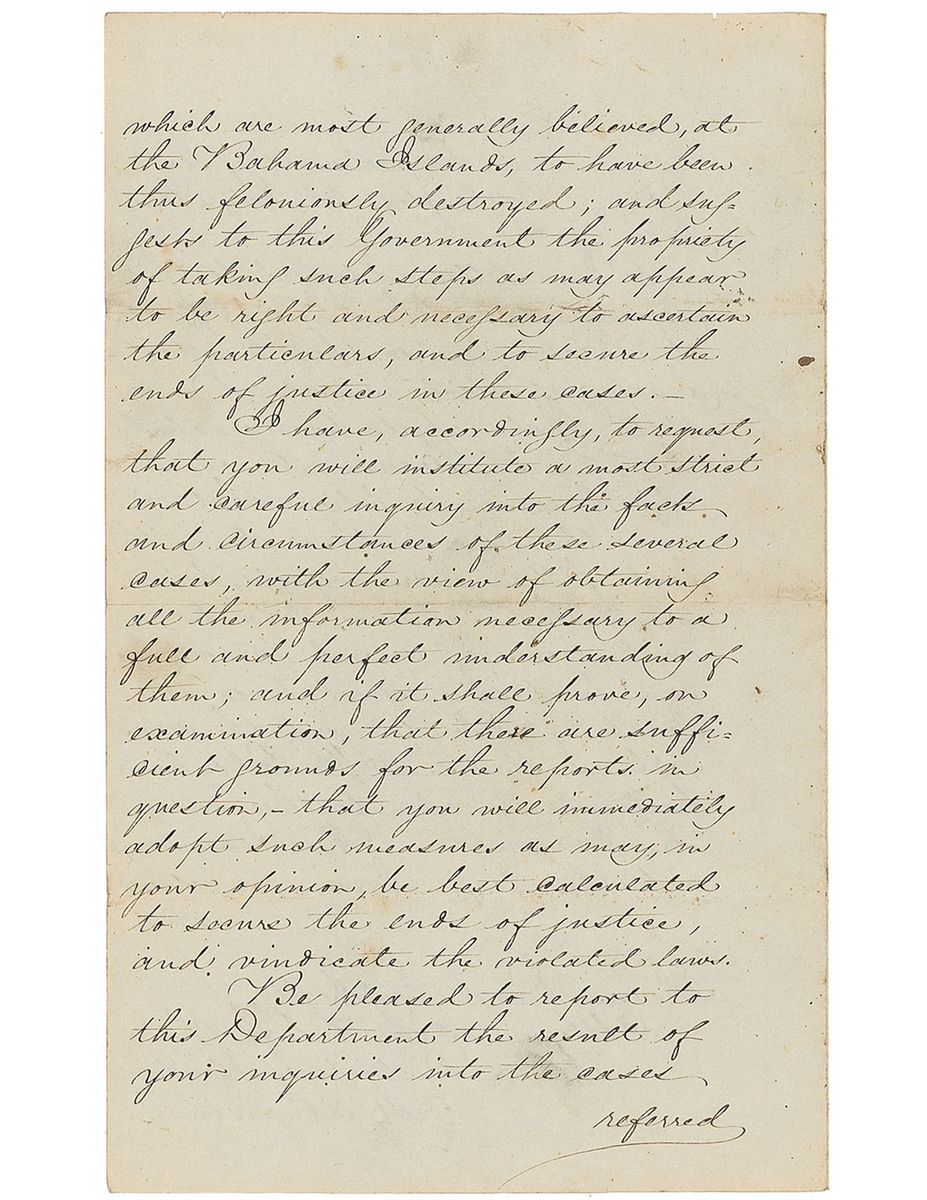 which are most generally believed, at
the Bahama Islands, to have been
thus feloniously destroyed; and sug=
gests to this Government the propriety
of taking such steps as may appear
to be right and necessary to ascertain
the particulars, and to secure the
ends of justice in these cases. —
I have, accordingly, to request,
that you will institute a most strict
and careful inquiry into the facts
and circumstances of these several
cases, with the view of obtaining
all the information necessary to a
full and perfect understanding of
them; and if it shall prove, on
examination, that there are suffi=
cient grounds for the reports in
question, – that you will immediately
adopt such measures as may, in
your opinion, be best calculated
to secure the ends of justice,
and vindicate the violated laws.
Be pleased to report to
this Department the result of
your inquiries into the cases
referred